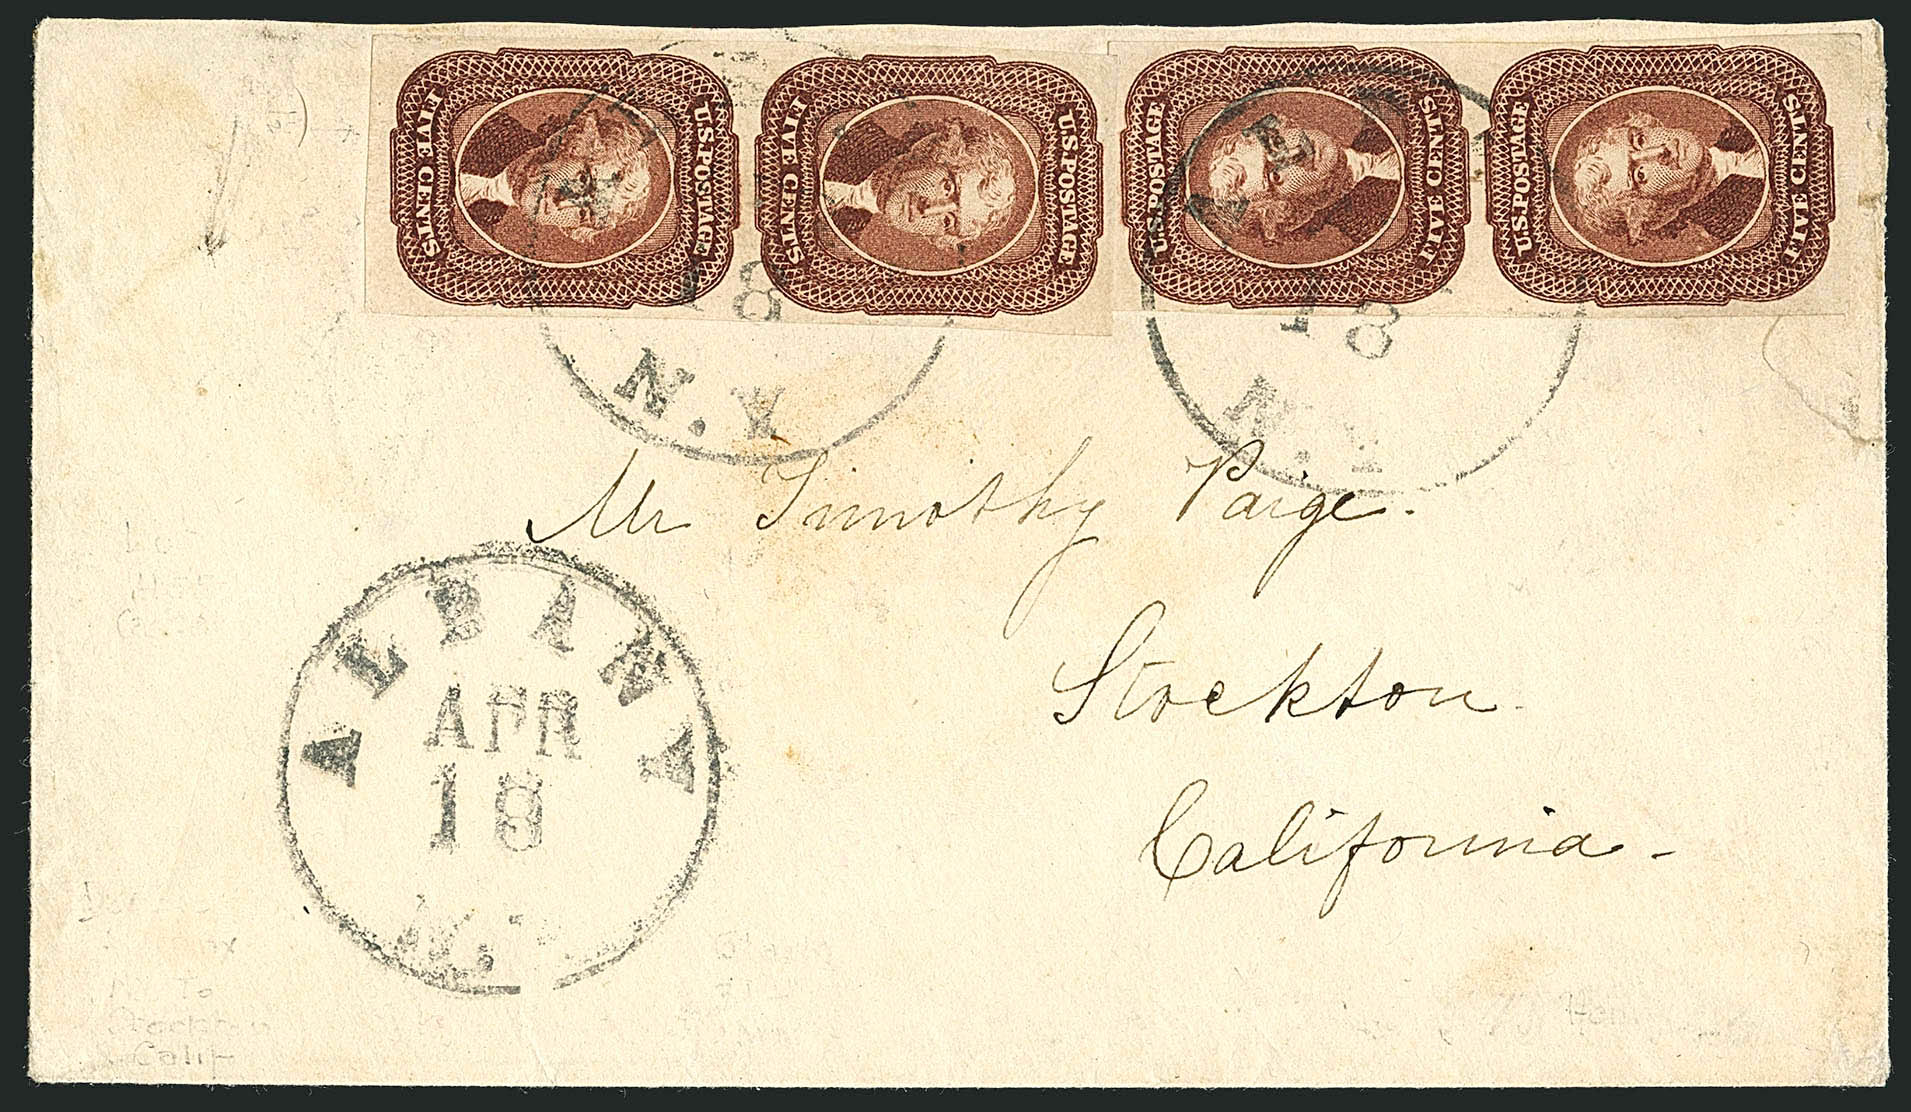 FIVE CENTS
U.S.POSTAGE
FIVE CENTS
U.S.POSTAGE
U.S.POSTAGE
FIVE CENTS
U.S.POSTAGE
FIVE CENTS
18
N.Y
18
N.Y
Mr Timothy Paige.
Stockton.
California-
ALBANY
APR
18
N.Y
To
Stockton
Calif